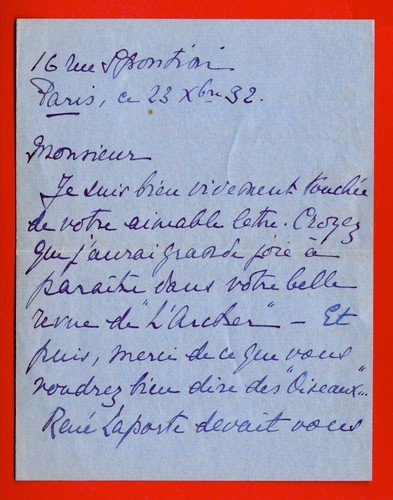 16 rue Spontini
Paris, ce 23 Xbre 32.
Monsieur
Je suis bien vivement touchée
de votre aimable lettre. Croyez
que j'aurai grande joie à
paraître dans votre belle
revue de "L'Archer" – Et
puis, merci de ce que vous
voudrez bien dire des "Oiseaux"...
René Laporte devait vous